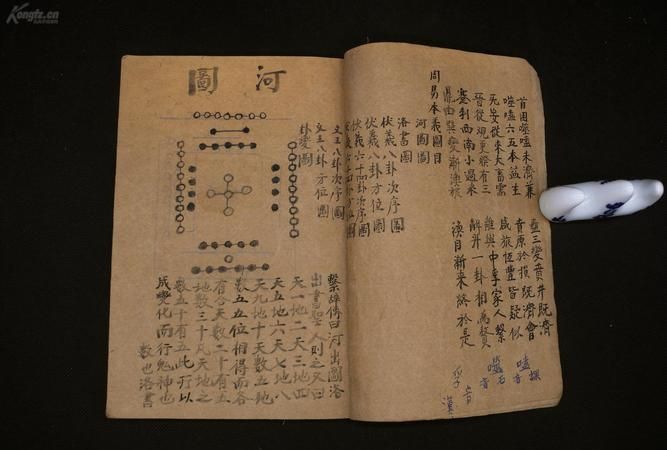 Kongfz.cn
首困噬嗑未濟兼
蠱三變賁井既濟
噬嗑六五本益生
賁原於損既濟會
无妄從來大畜需
咸旅恆豐皆疑似
晉從觀更睽有三
離與中孚家人繫
蹇利西南小過來
解升一卦相為贅
鼎由巽變漸渙旅
渙自漸來終於是
周易本義圖目
河圖圖
洛書圖
伏羲八卦次序圖
伏羲八卦方位圖
伏羲六十四卦次序圖
文王八卦次序圖
文王八卦方位圖
卦變圖
河圖
繫辭傳曰河出圖洛
出書聖人則之又曰
天一地二天三地四
天五地六天七地八
天九地十天數五地
數五五位相得而各
有合天數二十有五
地數三十凡天地之
數五十有五此所以
成變化而行鬼神也
數也洛書